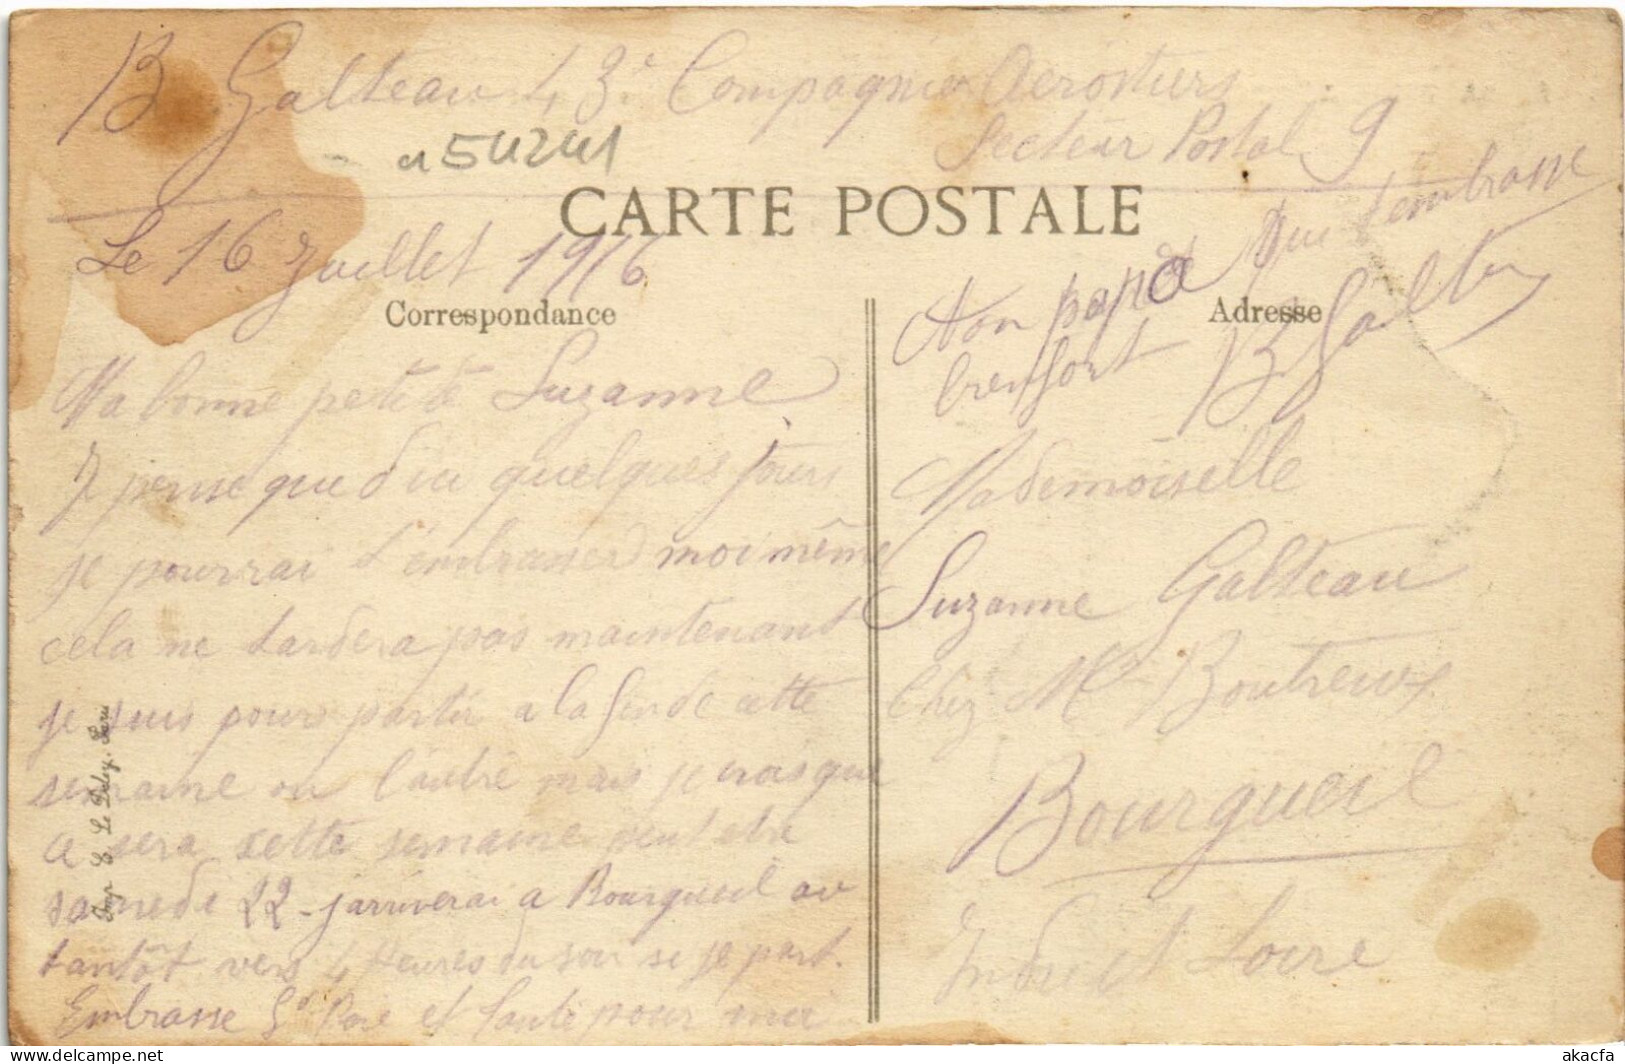 B Galteau 43e Compagnie Aerostiers
Secteur Postal 9
a 54241
CARTE POSTALE
Le 16 Juillet 1916
Correspondance
Ma bonne petite Suzanne
Je pense que d'ici quelques jours
je pourrai t'embrasser moi même
cela ne tardera pas maintenant
je suis pour partir a la fin de cette
semaine ou l'autre mais je crois que
ce sera cette semaine peut etre
samedi 22 - j'arriverai a Bourgueil au
tantôt vers 4 Heures du soir si je part.
Embrasse Gd Père et tante pour moi
Ton papa qui t'embrasse
bien fort B Galteau
Adresse
Mademoiselle
Suzanne Galteau
Chez Mr Boutreux
Bourgueil
Indre et Loire
Imp. E. Le Deley, Paris
akacfa